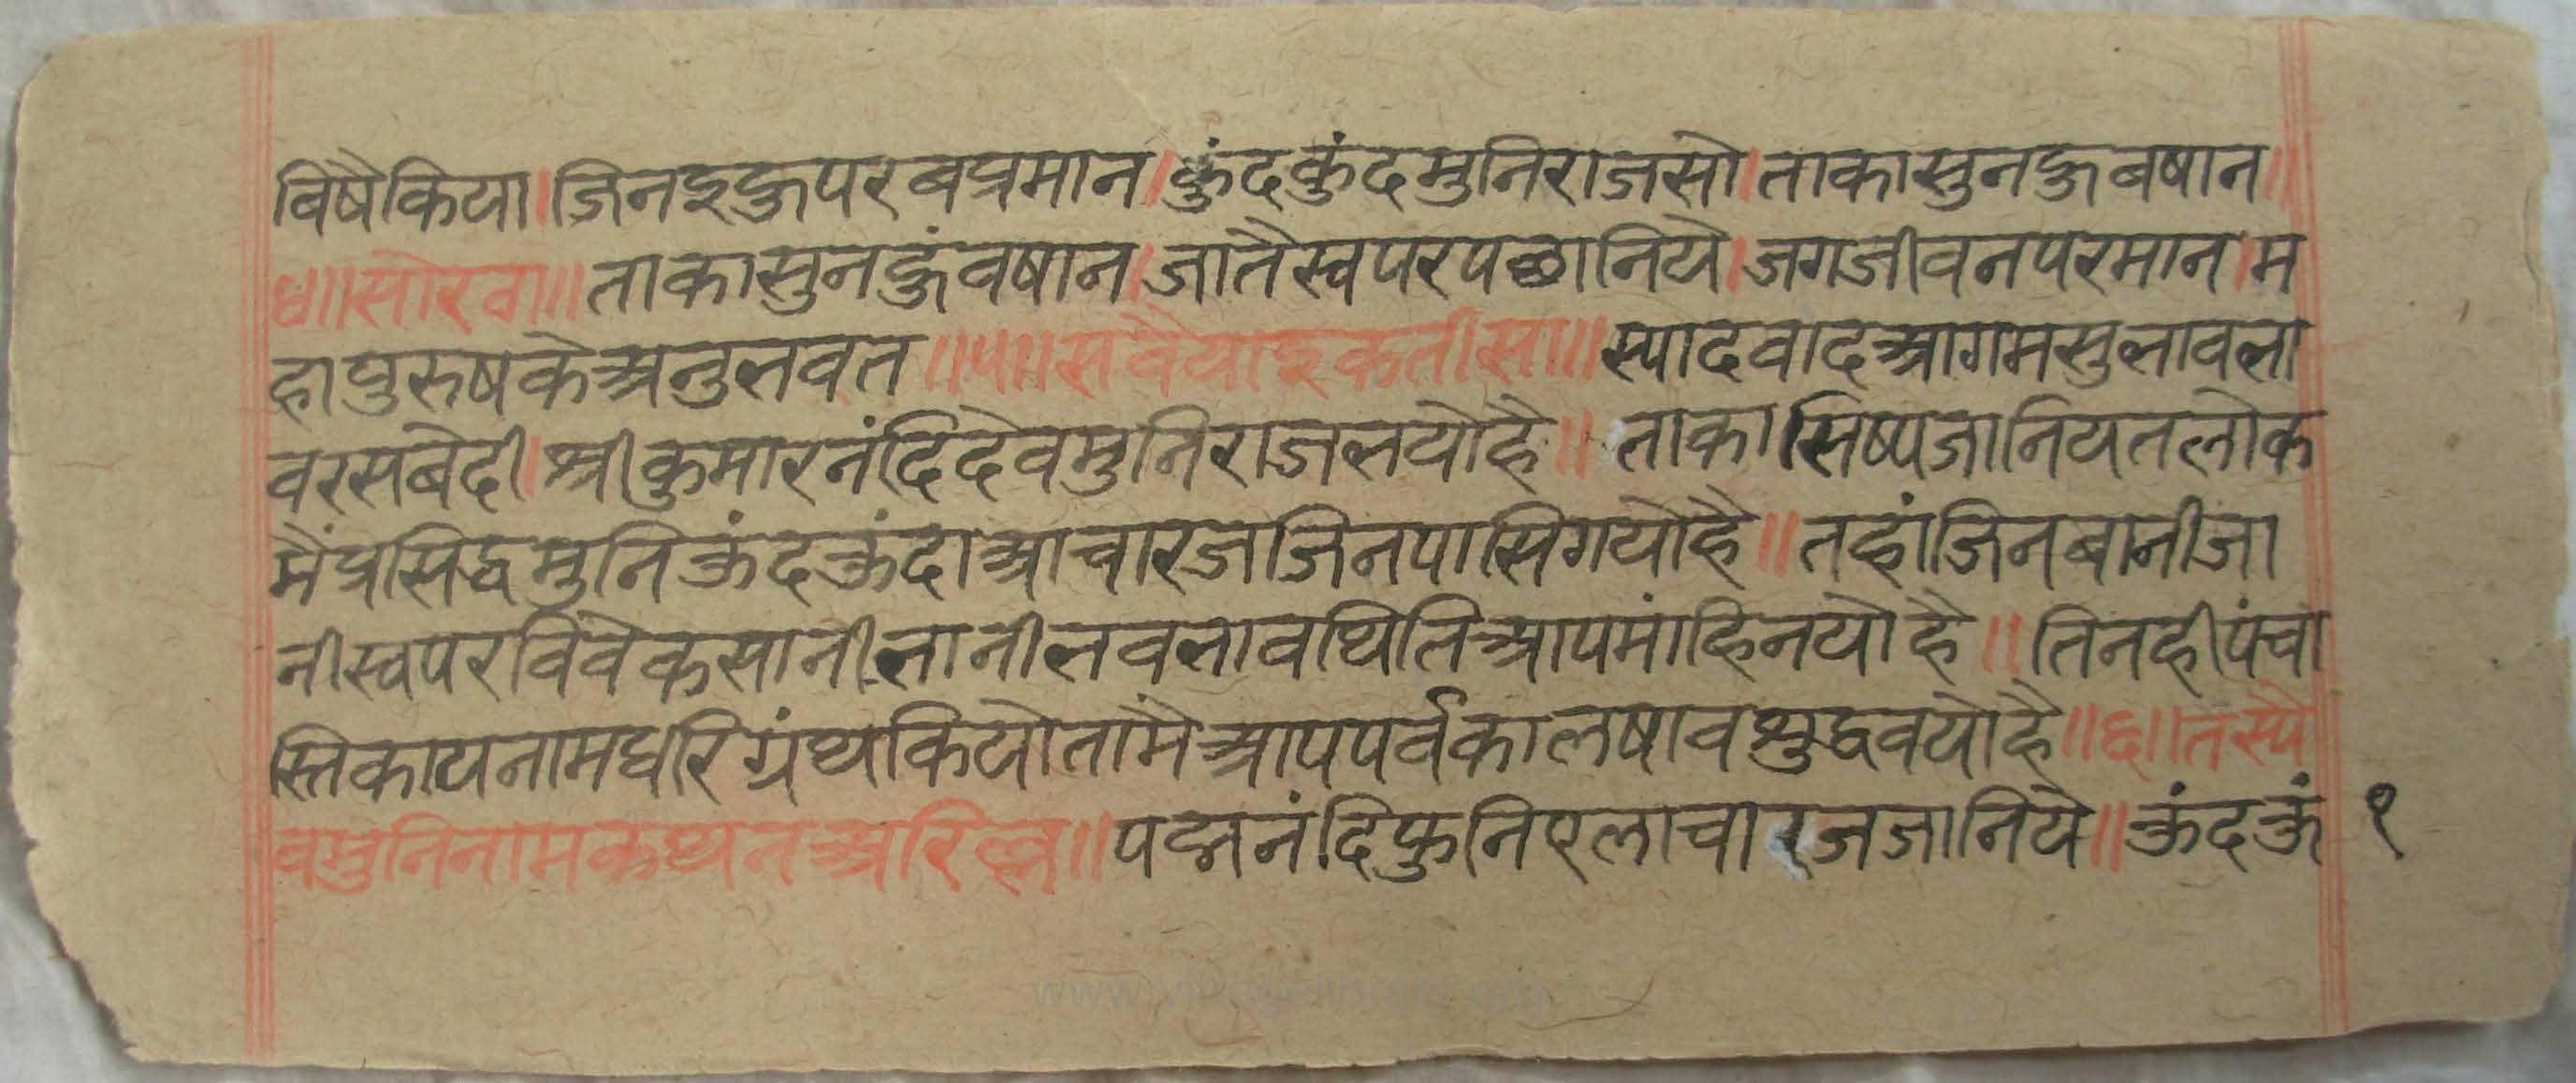 बिषैकिया।जिनइहुपरबप्रमान।कुंदकुंदमुनिराजसो।ताकासुनहुबषान॥
४॥सोरठा॥ताकासुनहुंवषान।जातैस्वपरपछानिये।जगजीवनपरमान।म
हापुरुषकेअनुलवत॥५॥सवैयाइकतीसा॥स्यादवादआगमसुलावला
वरसबेदी।श्रीकुमारनंदिदेवमुनिराजलयोहै॥ताकासिष्यजानियतलोक
मैंप्रसिद्धमुनिकुंदकुंदाआचारजजिनपासिगयोहै॥तहांजिनबानीजा
नीस्वपरविवेकसानीलानीलवलावथितिआपमांहिनयोहै॥तिनहीपंचा
स्तिकायनामधरिग्रंथकियोतामैआपपर्वकालषावशुद्धवयोहै॥६॥तस्यै
वमुनिनामकथनअरिल्ल॥पद्मनंदिफुनिएलाचारजजानिये॥कुंदकुं १